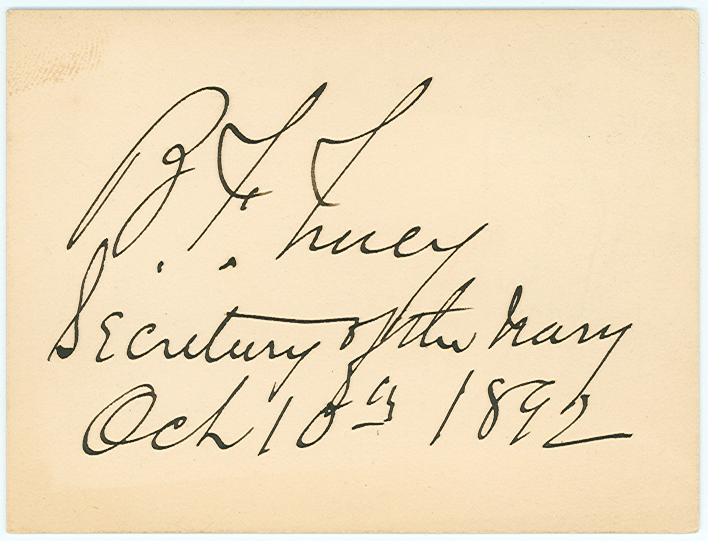 B. F. Tracy
Secretary of the Navy
Oct 10th 1892